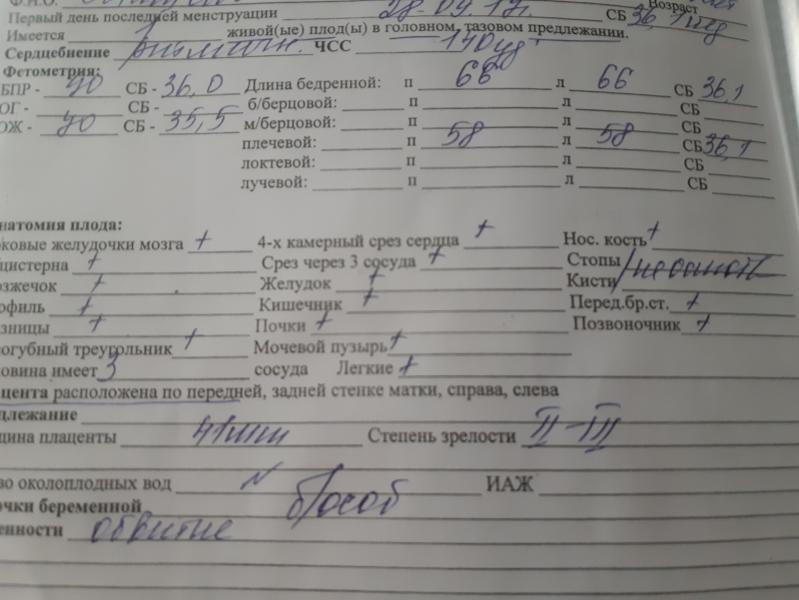 Ф.И.О.
Возраст
Первый день последней менструации 28.04.17г. СБ 36,1 нед
Имеется 1 живой(ые) плод(ы) в головном, тазовом предлежании.
Сердцебиение ритмичн. ЧСС 140 уд
Фетометрия:
БПР - 90 СБ - 36,0 Длина бедренной: п 66 л 66 СБ 36,1
ОГ - СБ - б/берцовой: п л СБ
ОЖ - 90 СБ - 35,5 м/берцовой: п л СБ
плечевой: п 58 л 58 СБ 36,1
локтевой: п л СБ
лучевой: п л СБ
натомия плода:
ковые желудочки мозга + 4-х камерный срез сердца + Нос. кость +
цистерна + Срез через 3 сосуда + Стопы
озжечок + Желудок + Кисти
офиль + Кишечник + Перед.бр.ст. +
азницы + Почки + Позвоночник +
огубный треугольник + Мочевой пузырь +
овина имеет 3 сосуда Легкие +
цента расположена по передней, задней стенке матки, справа, слева
длежание
щина плаценты 41мм Степень зрелости II-III
во околоплодных вод N ИАЖ
очки беременной б/особ
енности обвитие